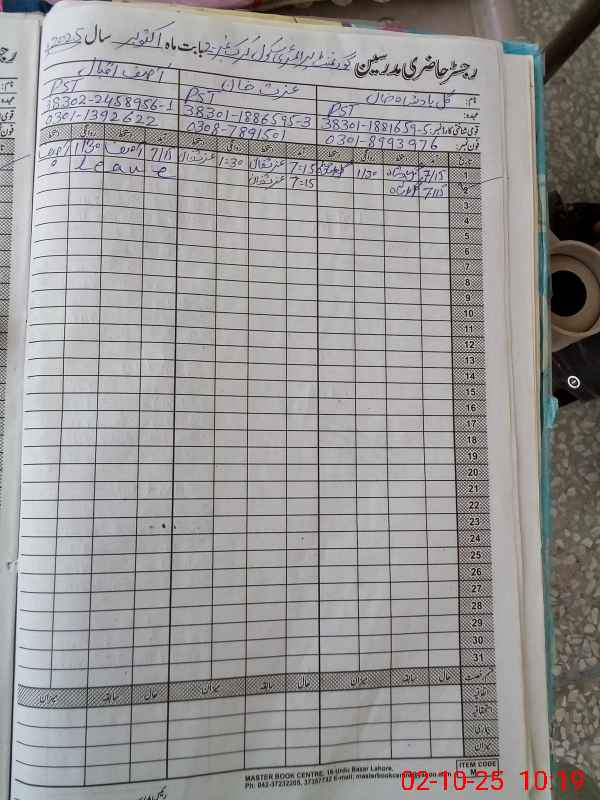 رجسٹر حاضری مدرسین گورنمنٹ پرائمری سکول بابت ماہ اکتوبر سال 2025
نام: گل بادشاہ خان عزت خان آصف اقبال
عہدہ: PST PST PST
قومی شناختی کارڈ نمبر: 38301-1881659-5 38301-1886595-3 38302-2458956-1
فون نمبر: 0301-8993976 0308-7891501 0301-1392622
تاریخ آمد دستخط روانگی دستخط آمد دستخط روانگی دستخط آمد دستخط روانگی دستخط
1 7/15 1/30 7=15 1=30 7/15 11/30
2 7/15 7=15 Leave
3
4
5
6
7
8
9
10
11
12
13
14
15
16
17
18
19
20
21
22
23
24
25
26
27
28
29
30
31
قسم رخصت حال سابقہ میزان حال سابقہ میزان حال سابقہ میزان
اتفاقیہ
استحقاقیہ
بیماری
میزان
ITEM CODE
MASTER BOOK CENTRE, 16-Urdu Bazar Lahore,
Ph: 042-37232205, 37357732 E-mail: masterbookcentre@yahoo.com
02-10-25 10:19